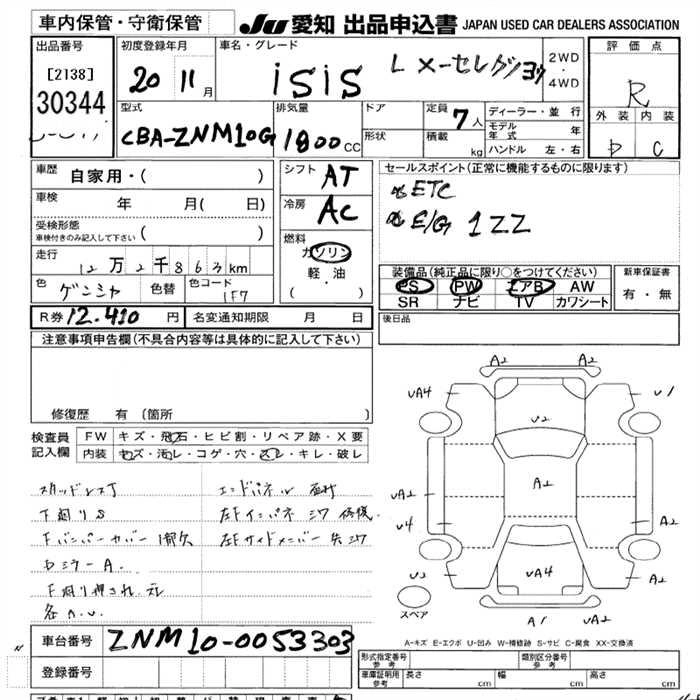 車内保管・守衛保管
JU 愛知 出品申込書 JAPAN USED CAR DEALERS ASSOCIATION
出品番号
[2138]
30344
初度登録年月
20 11 月
車名・グレード
iSiS L
2WD
・
4WD
評価点
R
外装 内装
D C
型式
CBA-ZNM10G
排気量
1800 CC
ドア
形状
定員 7 人
積載 kg
ディーラー・並行
モデル年式 年
ハンドル 左・右
車歴 自家用・( )
車検 年 月( 日)
受検形態
車検付きのみ記入して下さい ( )
走行 12 万 2 千 863 km
色 色替 色コード 1F7
シフト AT
冷房 AC
燃料
ガソリン
・
軽・油
( )
セールスポイント(正常に機能するものに限ります)
ETC
E/G 1ZZ
装備品(純正品に限り○をつけてください)
PS PW エアB AW
SR ナビ TV カワシート
新車保証書
有・無
R券 12.410 円
名変通知期限 月 日
後日品
注意事項申告欄(不具合内容等は具体的に記入して下さい)
修復歴 有 〔箇所 〕
検査員記入欄
FW キズ・飛石・ヒビ割・リペア跡・X要
内装 キズ・汚れ・コゲ・穴・スレ・キレ・破レ
スタッドレス
下廻りS
Fバンパーカバー
ミラーA.
エンドパネル
左Fインパネ
左Fサイドメンバー
A2
UA4
U1
U2
A2
UA2
U4
A2
UA4
U2
A2
スペア
A1 UA2
車台番号 ZNM10-0053303
登録番号
A-キズ E-エクボ U-凹み W-補修跡 S-サビ C-腐食 XX-交換済
形式指定番号 参考
類別区分番号 参考
車庫証明用 参考 長さ cm 幅 cm 高さ cm